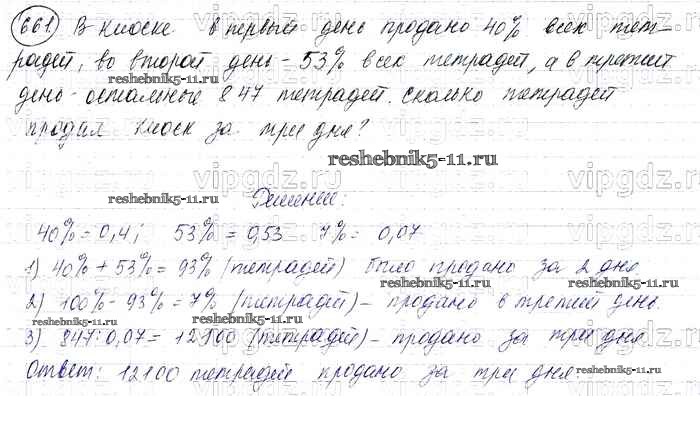 661) В киоске в первый день продано 40% всех тет-
радей, во второй день - 53% всех тетрадей, а в третий
день - остальные 847 тетрадей. Сколько тетрадей
продал киоск за три дня?
Решение:
40% = 0,4; 53% = 0,53 7% = 0,07
1) 40% + 53% = 93% (тетрадей) было продано за 2 дня
2) 100% - 93% = 7% (тетрадей) - продано в третий день
3) 847:0,07 = 12100 (тетрадей) - продано за три дня
Ответ: 12100 тетрадей продано за три дня.
reshebnik5-11.ru
reshebnik5-11.ru
reshebnik5-11.ru
reshebnik5-11.ru
reshebnik5-11.ru
vipgdz.ru
vipgdz.ru
vipgdz.ru